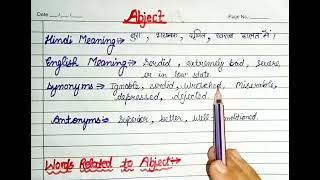 Date
Page No.
Abject
Hindi Meaning → बुरा, भयानक, घृणित, खराब हालत में
English Meaning → Sordid, extremely bad, severe
or in low state.
Synonyms → Ignoble, sordid, wretched, miserable,
depressed, dejected.
Antonyms → Superior, better, well-
Words Related to Abject →